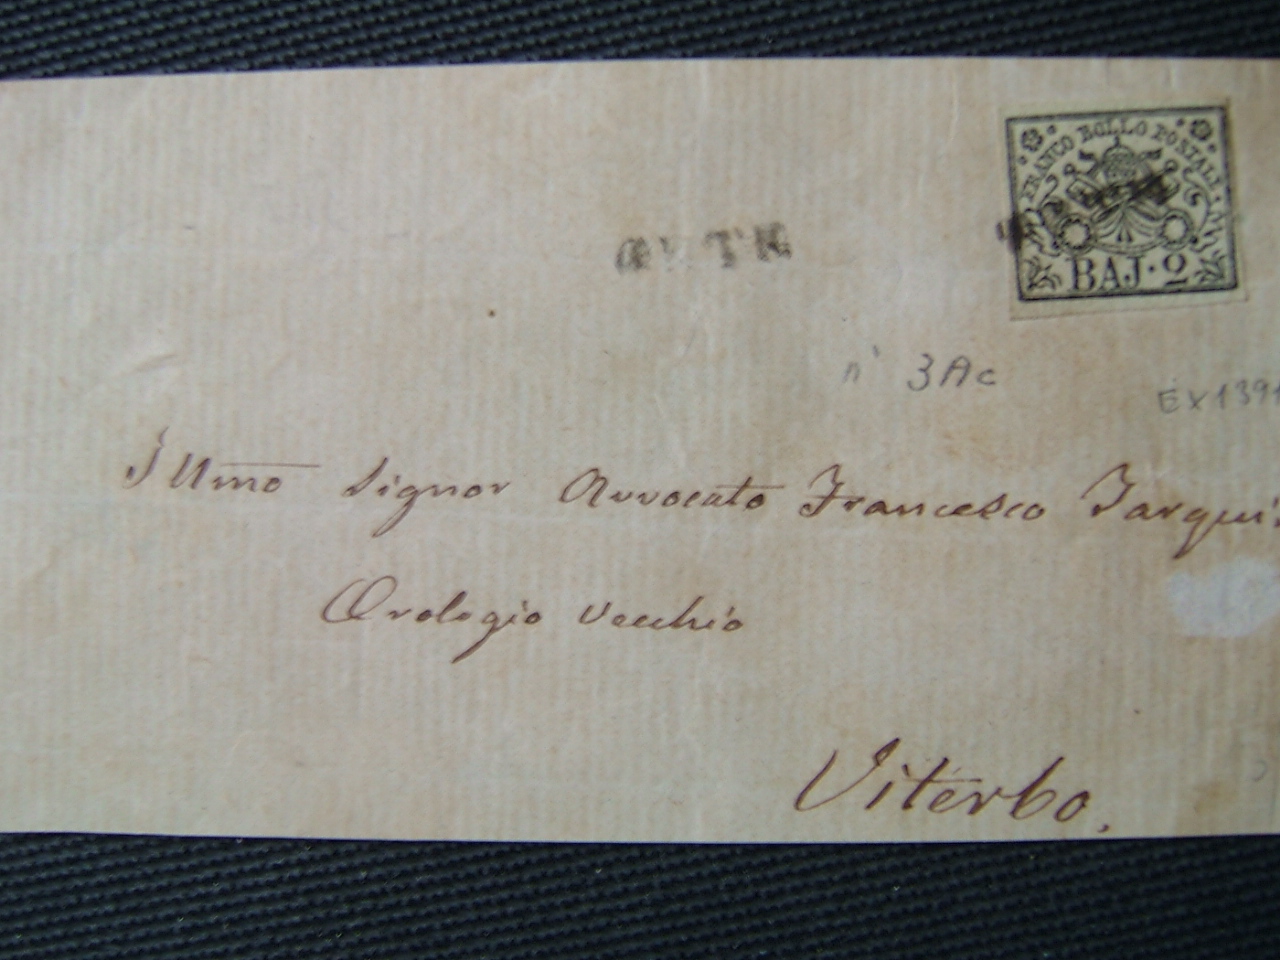 FRANCO BOLLO POSTALE
BAJ. 2
ORTE
n° 3Ac
Ex1391
Illmo Signor Avvocato Francesco Tarqui
Orologio Vecchio
Viterbo.